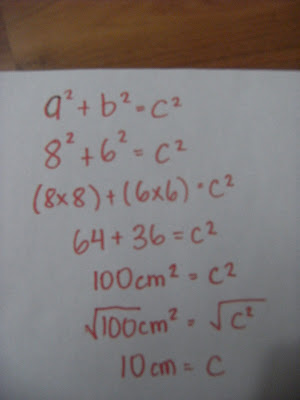 a² + b² = c²
8² + 6² = c²
(8x8) + (6x6) = c²
64 + 36 = c²
100cm² = c²
√100cm² = √c²
10cm = c